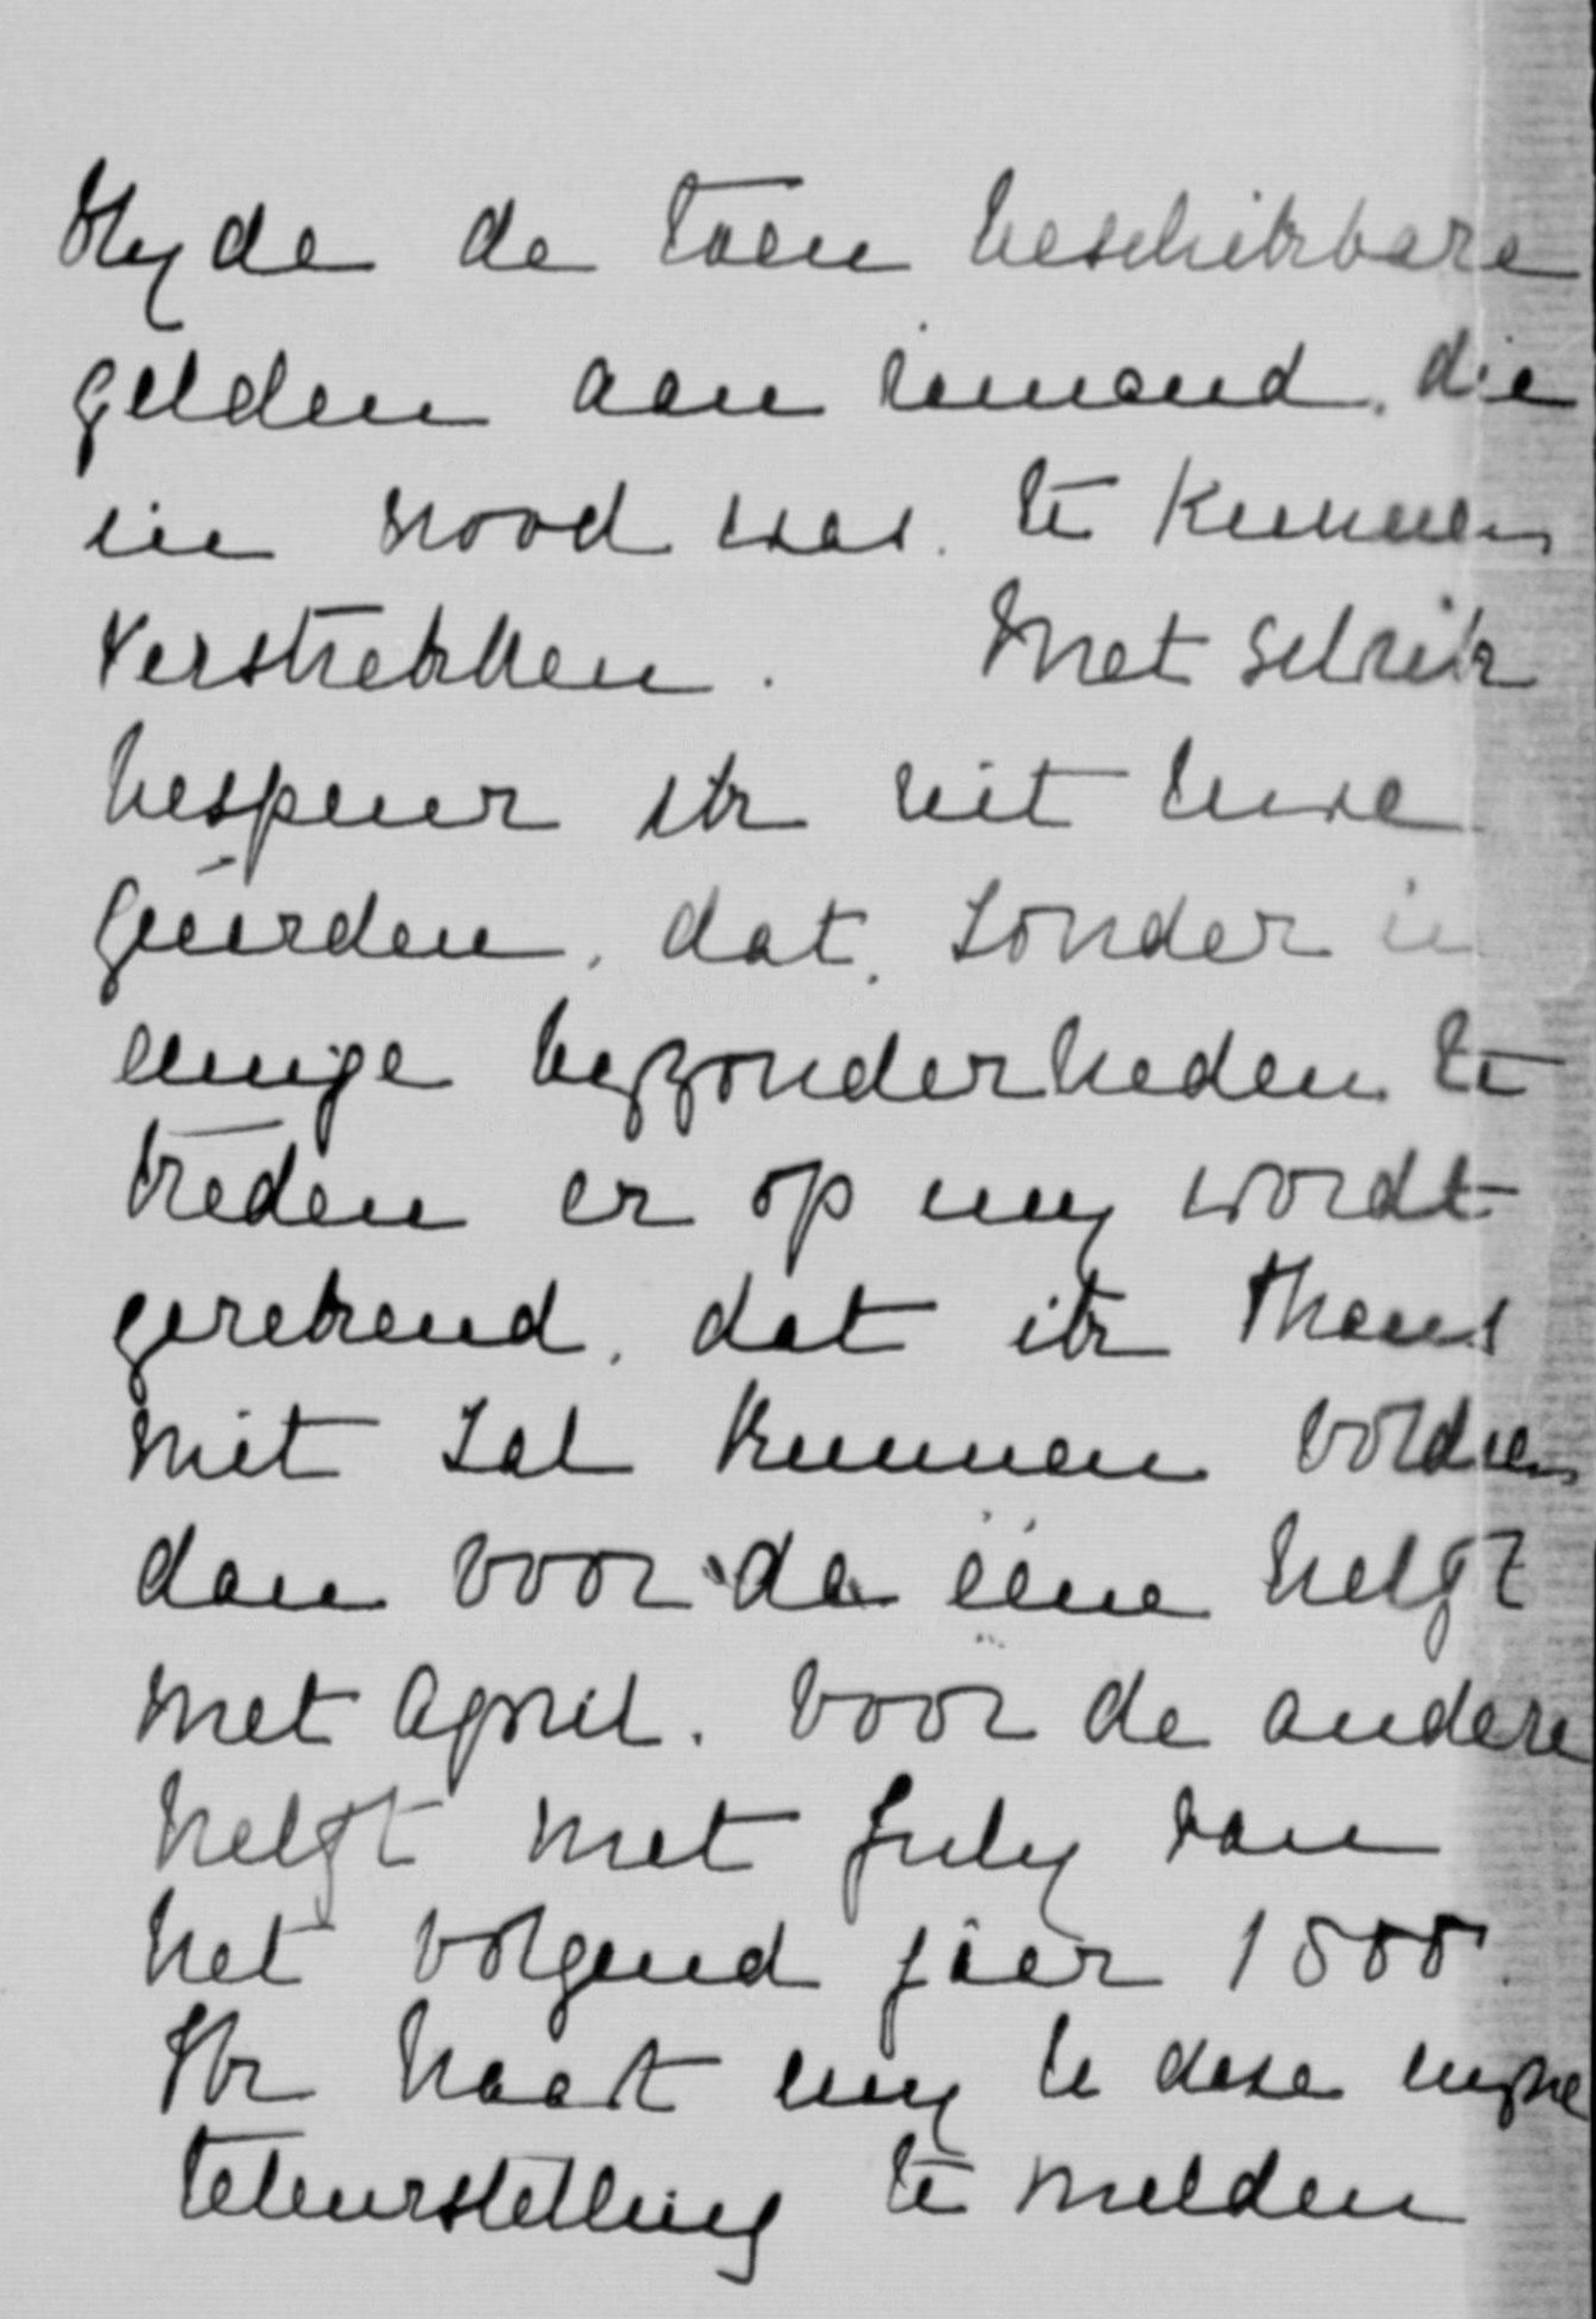 blyde de toen beschikbare
gelden aan iemand, die
in nood was, te kunnen
verstrekken. Met schrik
bespeur ik uit Uwe
geëerden, dat, zonder in
eenige byzonderheden te
treden er op my wordt
gerekend, dat ik thans
niet zal kunnen voldoen
dan voor de ééne helft
met April, voor de andere
helft met July van
het volgend jaar 1888.
Ik haast my U deze myne
teleurstelling te melden